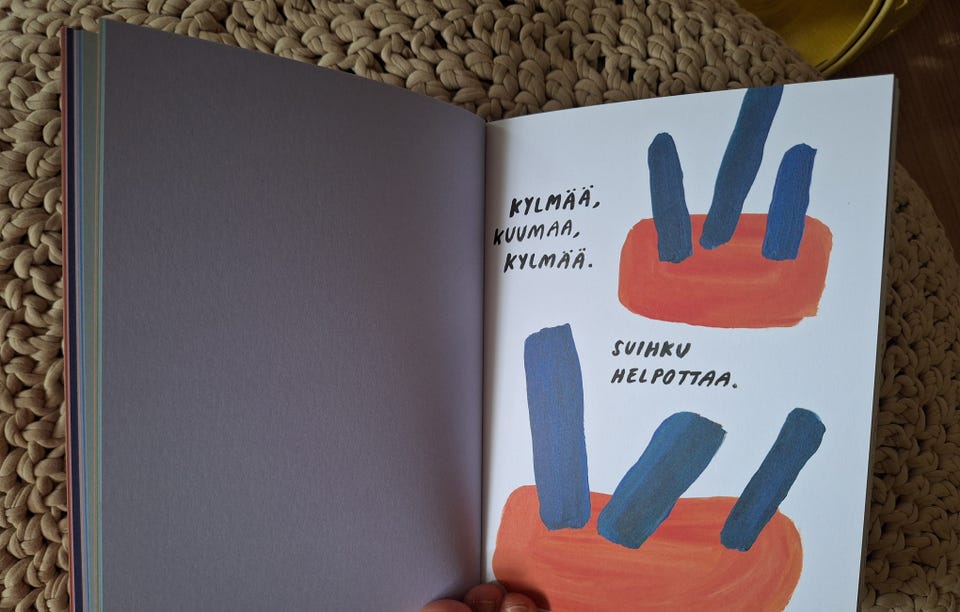 KYLMÄÄ,
KUUMAA,
KYLMÄÄ.
SUIHKU
HELPOTTAA.